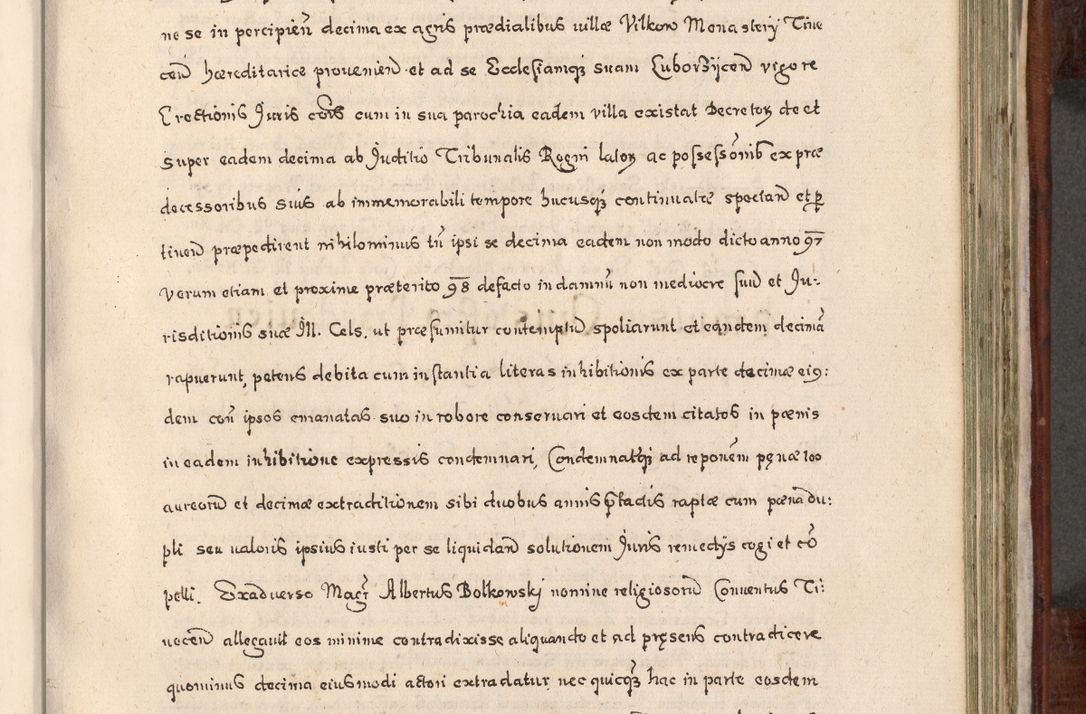 ne se in percipieñ decima ex agris prædialibus uillæ Vilkow Monastery Tine
ceñ hæreditarice provenieñ et ad se Ecclesiamq́ suam Luborzijceñ vigore
Erectionis Juris cõis cum in sua parochia eadem villa existat Decretoꝝ de et
super eadem decima ab Juditio Tribunalis Regni latoꝝ ac possessõnib̃ ex præ
decessoribus suis ab immemorabili tempore hucusq́ continuatæ spectañ et ꝑ
tineñ præpedirent nihilominus tñ ipsi se decima eadem non modo dicto anno 97
Verum etiam et proxime præterito 98 defacto in damnũ non mediocre suũ et Ju-
risditionis suæ Ill. Cels. ut præsumitur contemptũ spoliarunt et eandem decimã
rapuerunt, petens debita cum instantia literas inhibitionis ex parte decimæ eius:
dem coñ ipsos emanatas suo in robore conseruari et eosdem citatos in pænis
in eadem inhibitione expressis condemnari, Condemnatq́ ad reponẽm pęnæ 100
aureorũ et decimæ extraditionem sibi duobus annis p̃tadis raptæ cum pæna du:
pli seu ualoris ipsius iusti per se liquidañ solutionem Juris remedys cogi et cõ
pelli. Exaduerso Magr̃ Albertus Bolkowskj nomine religiosorũ Conuentus Ti:
neceñ allegauit eos minime contradixisse aliquando et ad pręsens contradicere
quominus decima eiusmodi actori extradatur nec quicq́ hac in parte eosdem